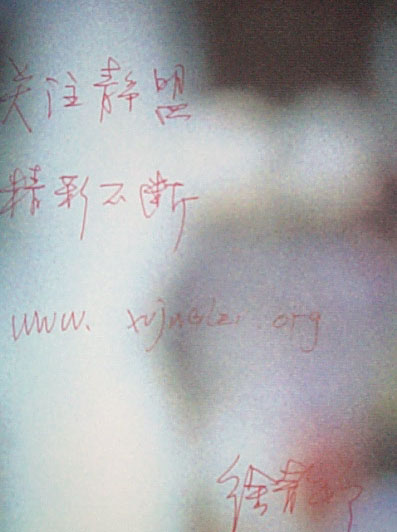 关注静盟
精彩不断
www. .org
徐静